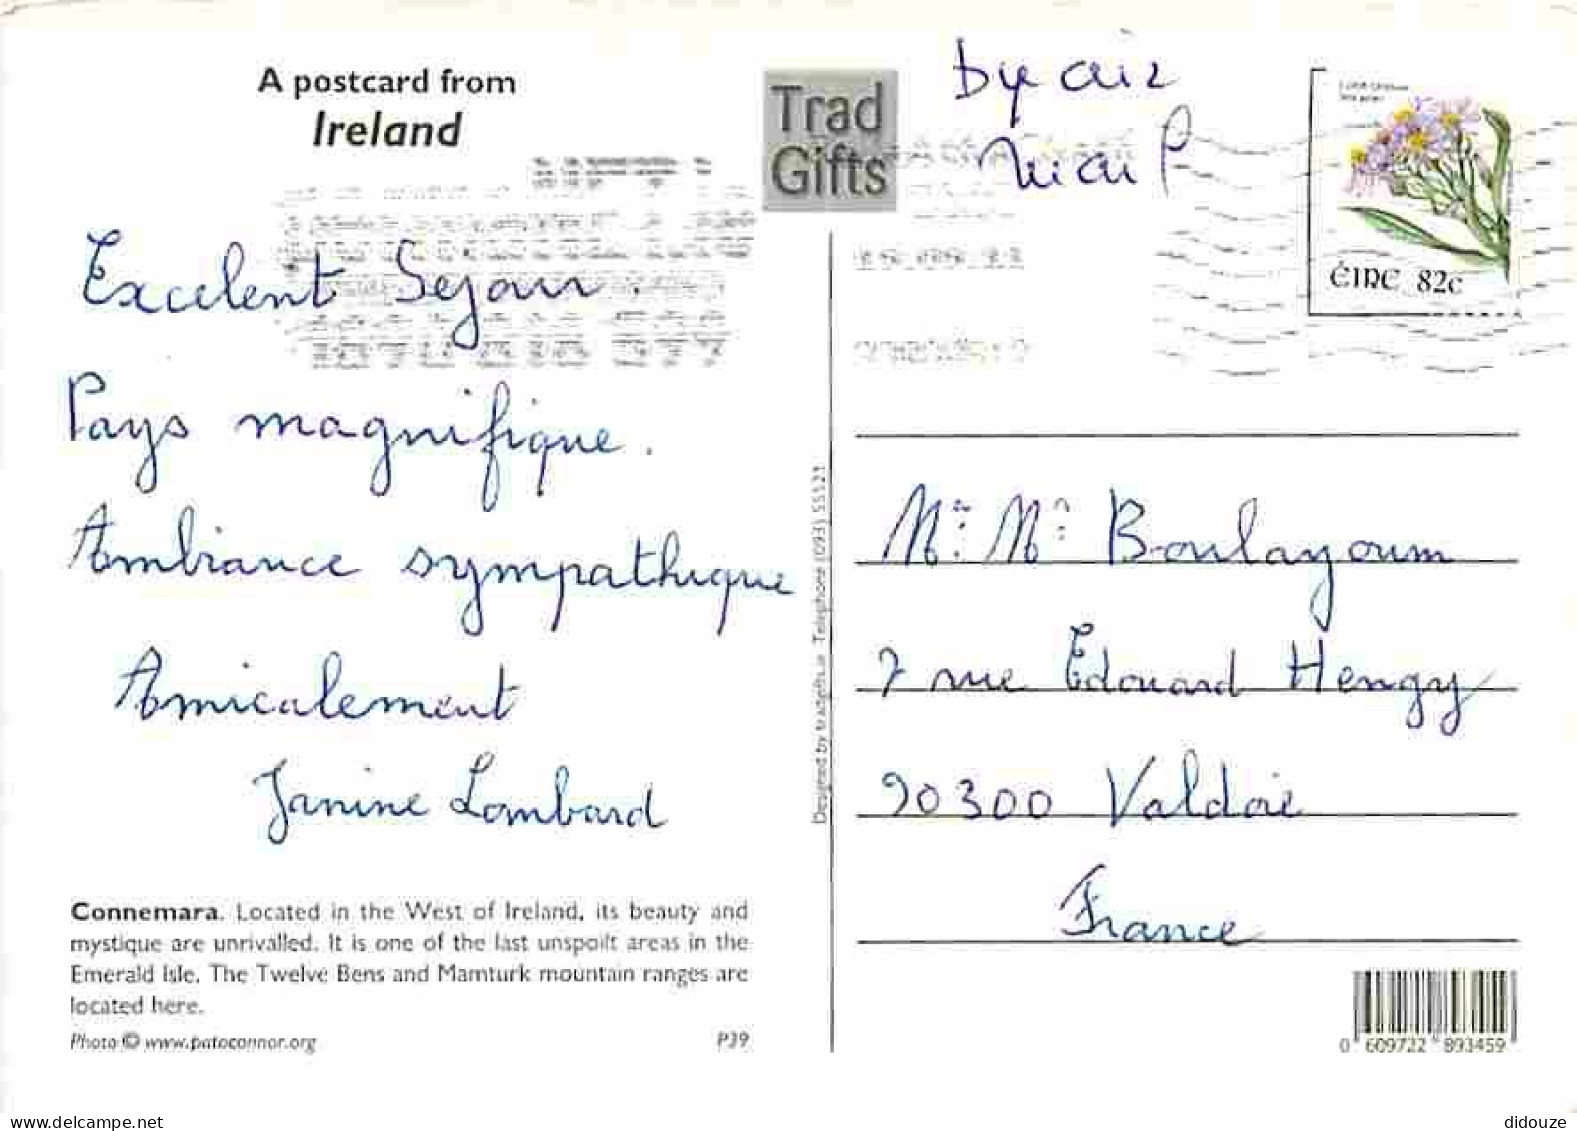 A postcard from
Ireland
Trad
Gifts
By air
mail
ÉIRE 82c
Excelent Sejour.
Pays magnifique.
Ambiance sympathique
Amicalement
Janine Lombard
Connemara. Located in the West of Ireland, its beauty and
mystique are unrivalled. It is one of the last unspoilt areas in the
Emerald Isle. The Twelve Bens and Mamturk mountain ranges are
located here.
Photo © www.patoconnor.org P39
Designed by tradgifts.ie Telephone (093) 55121
Mr. Me Boulayoum
7 rue Edouard Hengy
90300 Valdoie
France
0 609722 893459
delcampe.net
didouze